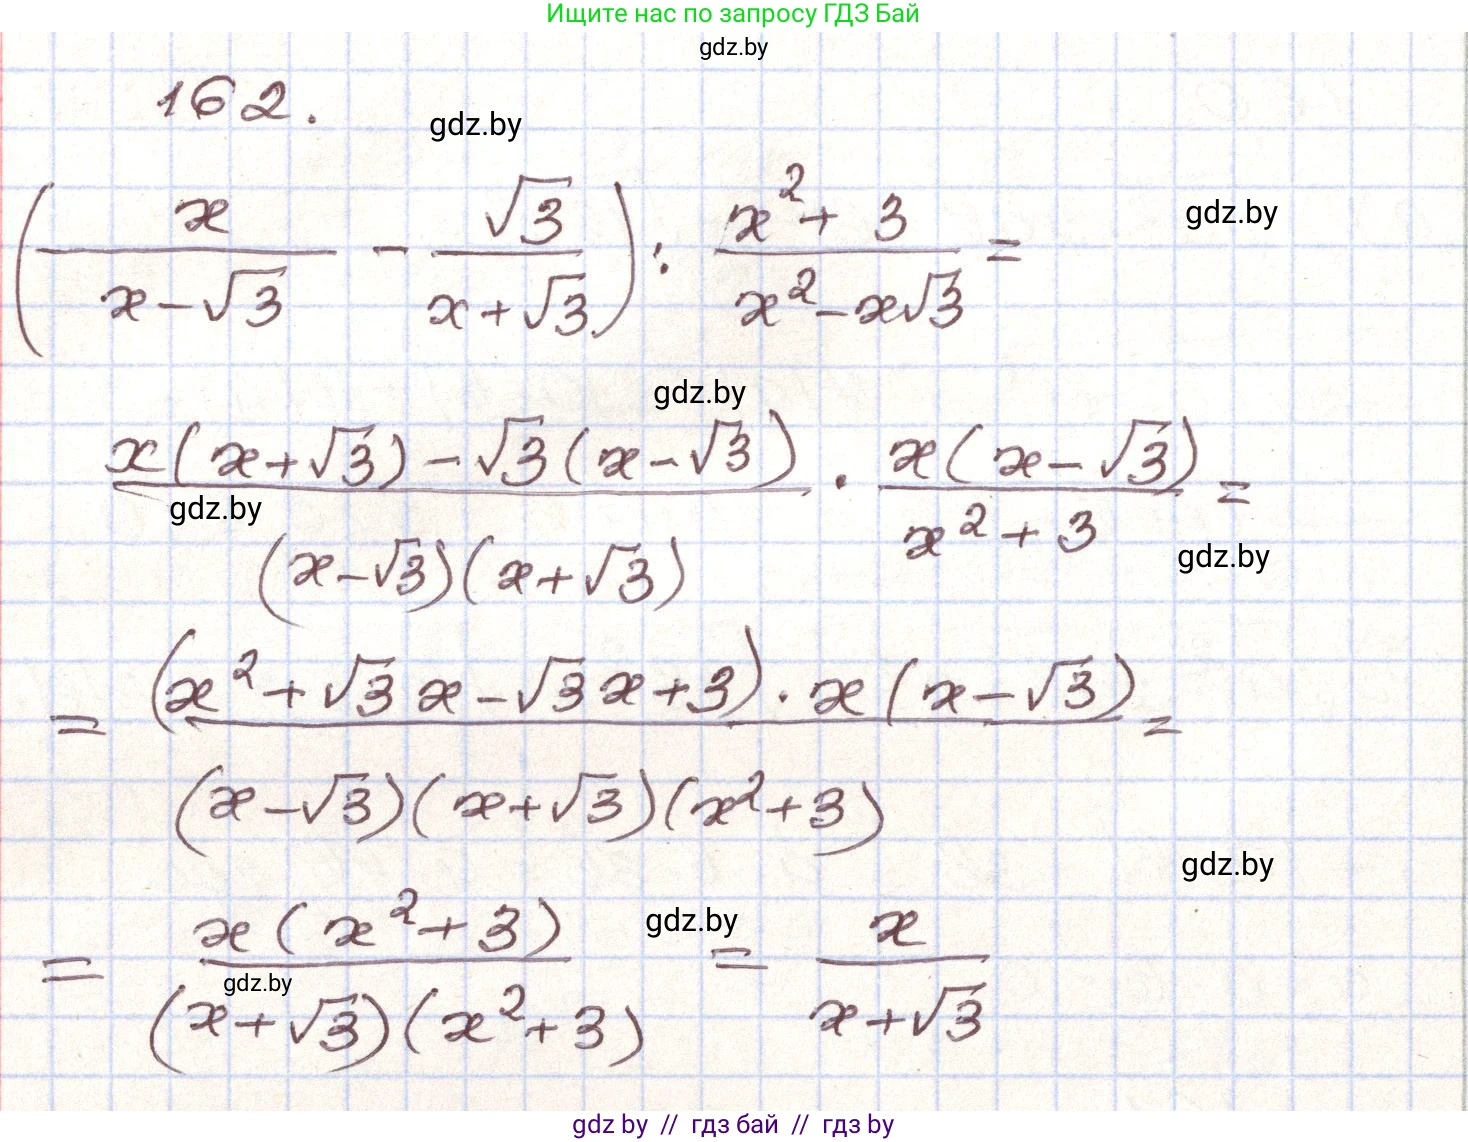 Ищите нас по запросу ГДЗ Бай
gdz.by
162.
gdz.by
(x/(x-√3) - √3/(x+√3)) : (x²+3)/(x²-x√3) =
gdz.by
gdz.by
(x(x+√3)-√3(x-√3))/((x-√3)(x+√3)) · (x(x-√3))/(x²+3) =
gdz.by
gdz.by
= ((x²+√3x-√3x+3)·x(x-√3))/((x-√3)(x+√3)(x²+3)) =
gdz.by
= (x(x²+3))/((x+√3)(x²+3)) = x/(x+√3)
gdz.by
gdz.by
gdz by // гдз бай // гдз by